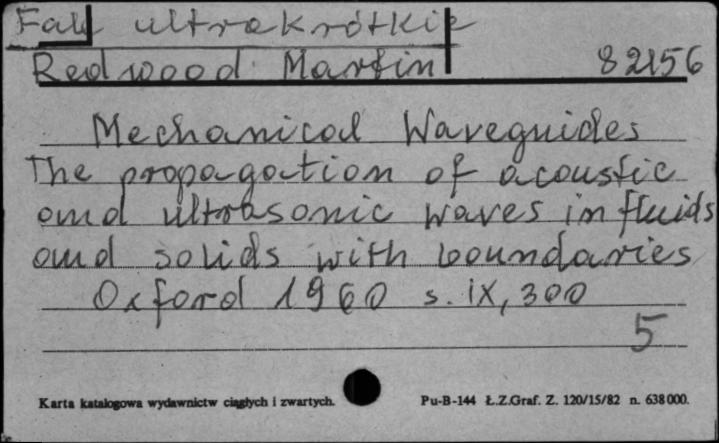 Fale ultrakrótkie
Redwood Martin 82156
Mechanical Waveguides
The propagation of acoustic
and ultrasonic waves in fluids
and solids with boundaries
Oxford 1960 s. IX, 300
5
Karta katalogowa wydawnictw ciągłych i zwartych. Pu-B-144 Ł.Z.Graf. Z. 120/15/82 n. 638000.